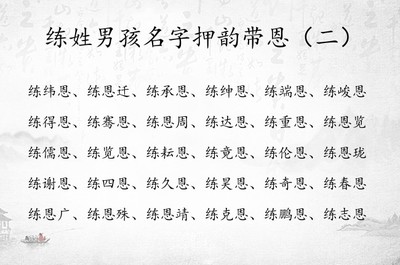 练姓男孩名字押韵带恩（二）
练纬恩、练恩迁、练承恩、练绅恩、练端恩、练峻恩
练得恩、练骞恩、练恩周、练达恩、练重恩、练恩览
练儒恩、练览恩、练耘恩、练竟恩、练伦恩、练恩珑
练谢恩、练四恩、练久恩、练昊恩、练奇恩、练春恩
练恩广、练恩殊、练恩靖、练克恩、练鹏恩、练志恩